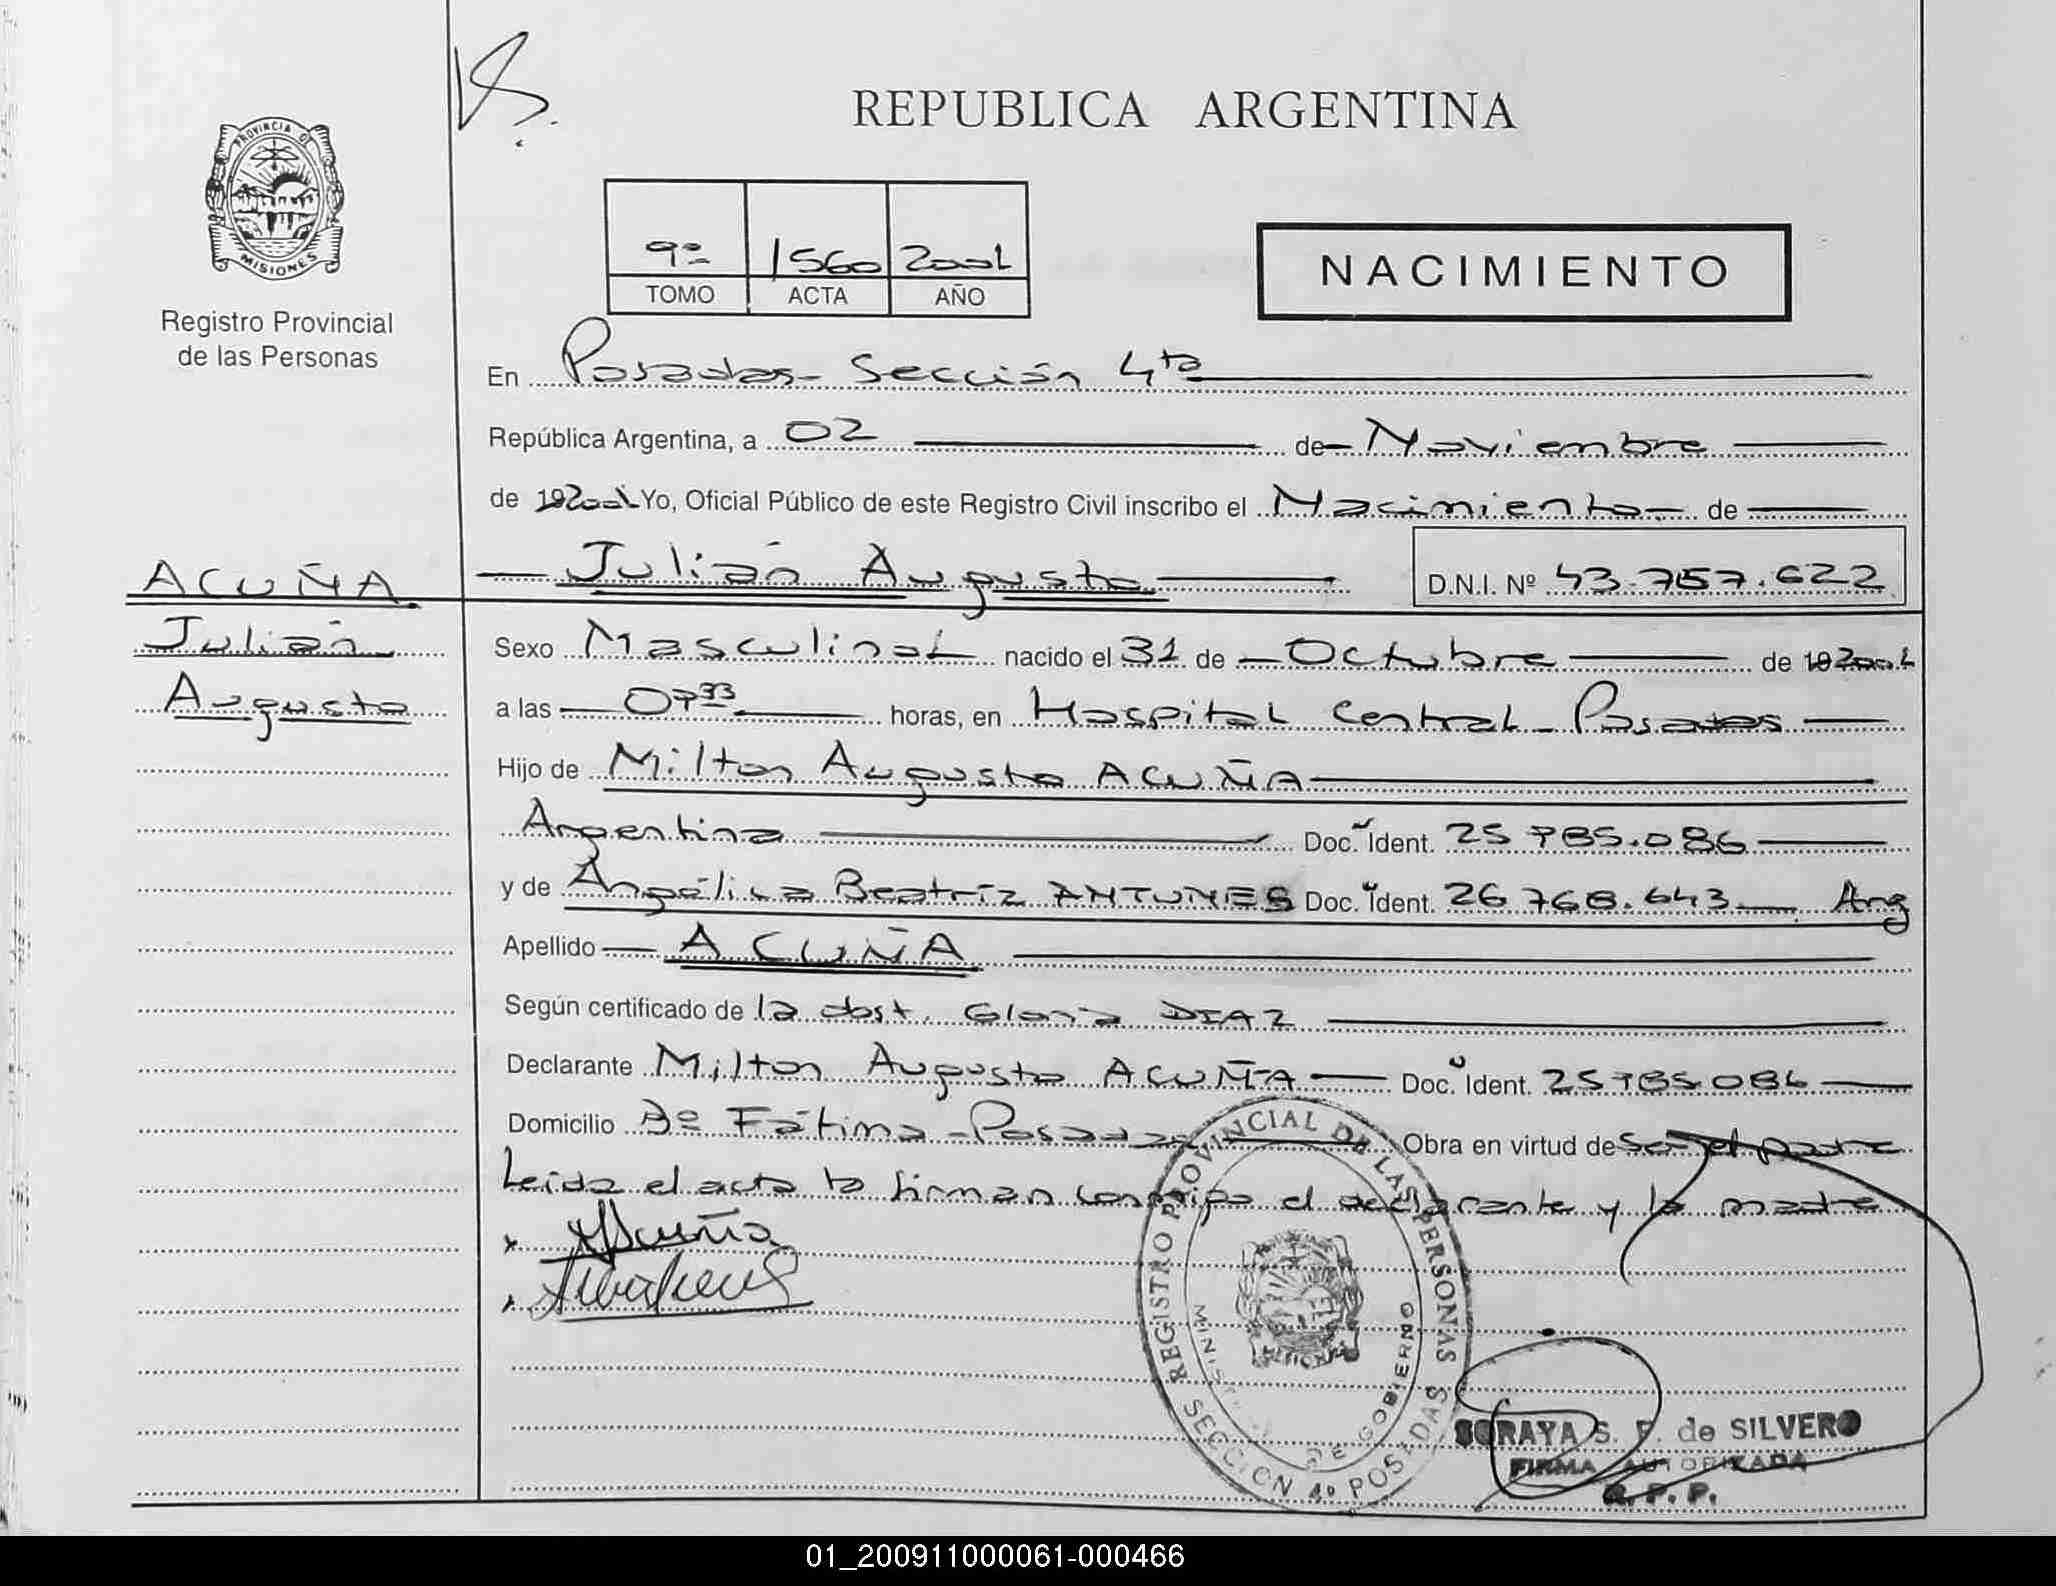 REPUBLICA ARGENTINA
PROVINCIA DE
MISIONES
Registro Provincial
de las Personas
9º 1560 2001
TOMO ACTA AÑO
NACIMIENTO
En Posadas - Sección 4ta
República Argentina, a 02 de Noviembre
de 192001 Yo, Oficial Público de este Registro Civil inscribo el Nacimiento de
Julián Augusto D.N.I. Nº 43.757.622
ACUÑA
Julián
Augusto
Sexo Masculino nacido el 31 de Octubre de 192001
a las 07 33 horas, en Hospital Central - Posadas
Hijo de Milton Augusto ACUÑA
Argentina Doc. Ident. 25 785.086
y de Angélica Beatríz ANTUNES Doc. Ident. 26 768.643 Arg
Apellido ACUÑA
Según certificado de la obst. Gloria DIAZ
Declarante Milton Augusto ACUÑA Doc. Ident. 25 785 086
Domicilio Bº Fátima - Posadas Obra en virtud de ser el padre
Leída el acta la firman conmigo el declarante y la madre
x Acuña
x
REGISTRO PROVINCIAL DE LAS PERSONAS
DE GOBIERNO
SECCION 4º POSADAS
SORAYA S. F. de SILVERO
FIRMA AUTORIZADA
R. P. P.
01_200911000061-000466